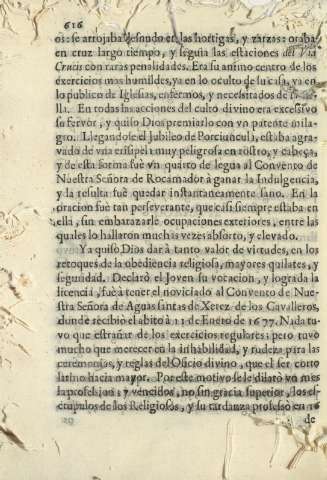 616
os: se arrojaba desnudo en las hortigas, y zarzas: oraba
en cruz largo tiempo, y seguia las estaciones del Via
Crucis con raras penalidades. Era su animo centro de los
exercicios mas humildes, ya en lo oculto de su casa, ya en
lo publico de Iglesias, enfermos, y necesitados de
lla. En todas las acciones del culto divino era excessivo
su fervor, y quiso Dios premiarlo con vn patente mila-
gro. Llegandose el Jubileo de Porciuncula, estaba agra-
vado de vna erisipela muy peligrosa en rostro, y cabeça,
y de esta forma fuè vn quarto de legua al Convento de
Nuestra Señora de Rocamador à ganar la Indulgencia,
y la resulta fuè quedar instantaneamente sano. En la
oracion fuè tan perseverante, que casi siempre estaba en
ella, sin embarazarle ocupaciones exteriores, entre las
quales lo hallaron muchas vezes absorto, y elevado.
Ya quiso Dios dar à tanto valor de virtudes, en los
retoques de la obediencia religiosa, mayores quilates, y
seguridad. Declarò el Joven su vocacion, y lograda la
licencia, fuè à tener el noviciado al Convento de Nue-
stra Señora de Aguas santas de Xerez de los Cavalleros,
donde recibiò el abito à 11 de Enero de 1677. Nada tu-
vo que estrañar de los exercicios regulares; pero tuvo
mucho que merecer en la inhabilidad, y rudeza para las
ceremonias, y reglas del Oficio divino, que el ser corto
latino hacia mayor. Por este motivo se le dilatò vn mes
la profesion; y vencidos, no sin gracia superior, los es-
crupulos de los Religiosos, y su tardanza professò en 16
de